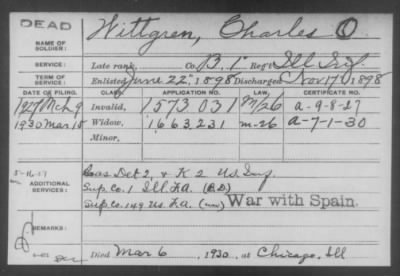 DEAD
Wittgren, Charles O.
NAME OF SOLDIER:
SERVICE: Late rank, Co. B, 1 Reg't Ill Inf.
TERM OF SERVICE: Enlisted June 22, 1898 Discharged Nov 17, 1898
DATE OF FILING. CLASS. APPLICATION NO. LAW. CERTIFICATE NO.
1927 Mch 9 Invalid, 1573031 M/26 a-9-8-27
1930 Mar 15 Widow, 1663231 m-26 a-7-1-30
Minor,
5-16-17
ADDITIONAL SERVICES: Det 2, & K 2 U.S. Inf.
Sup. Co. 1 Ill. F.A.
Sup. Co. 149 U.S. F.A. War with Spain.
REMARKS:
Died Mar 6, 1930, at Chicago, Ill